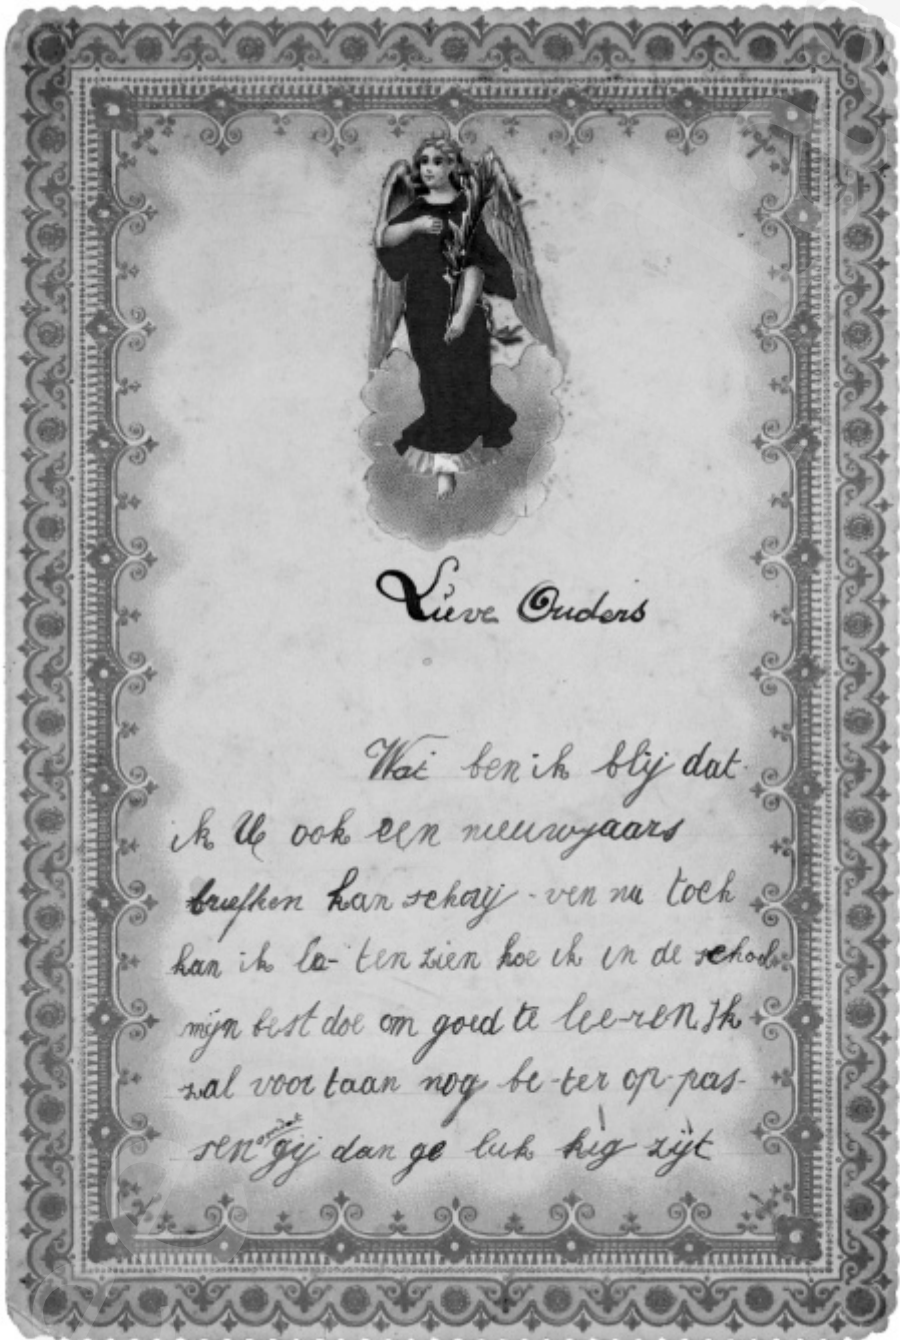 Lieve Ouders
Wat ben ik blij dat
ik U ook een nieuwjaars
briefken kan schrij-ven nu toch
kan ik la-ten zien hoe ik in de school
mijn best doe om goed te lee-ren. Ik
zal voor taan nog be-ter op-pas-
sen omdat gij dan ge luk kig zijt